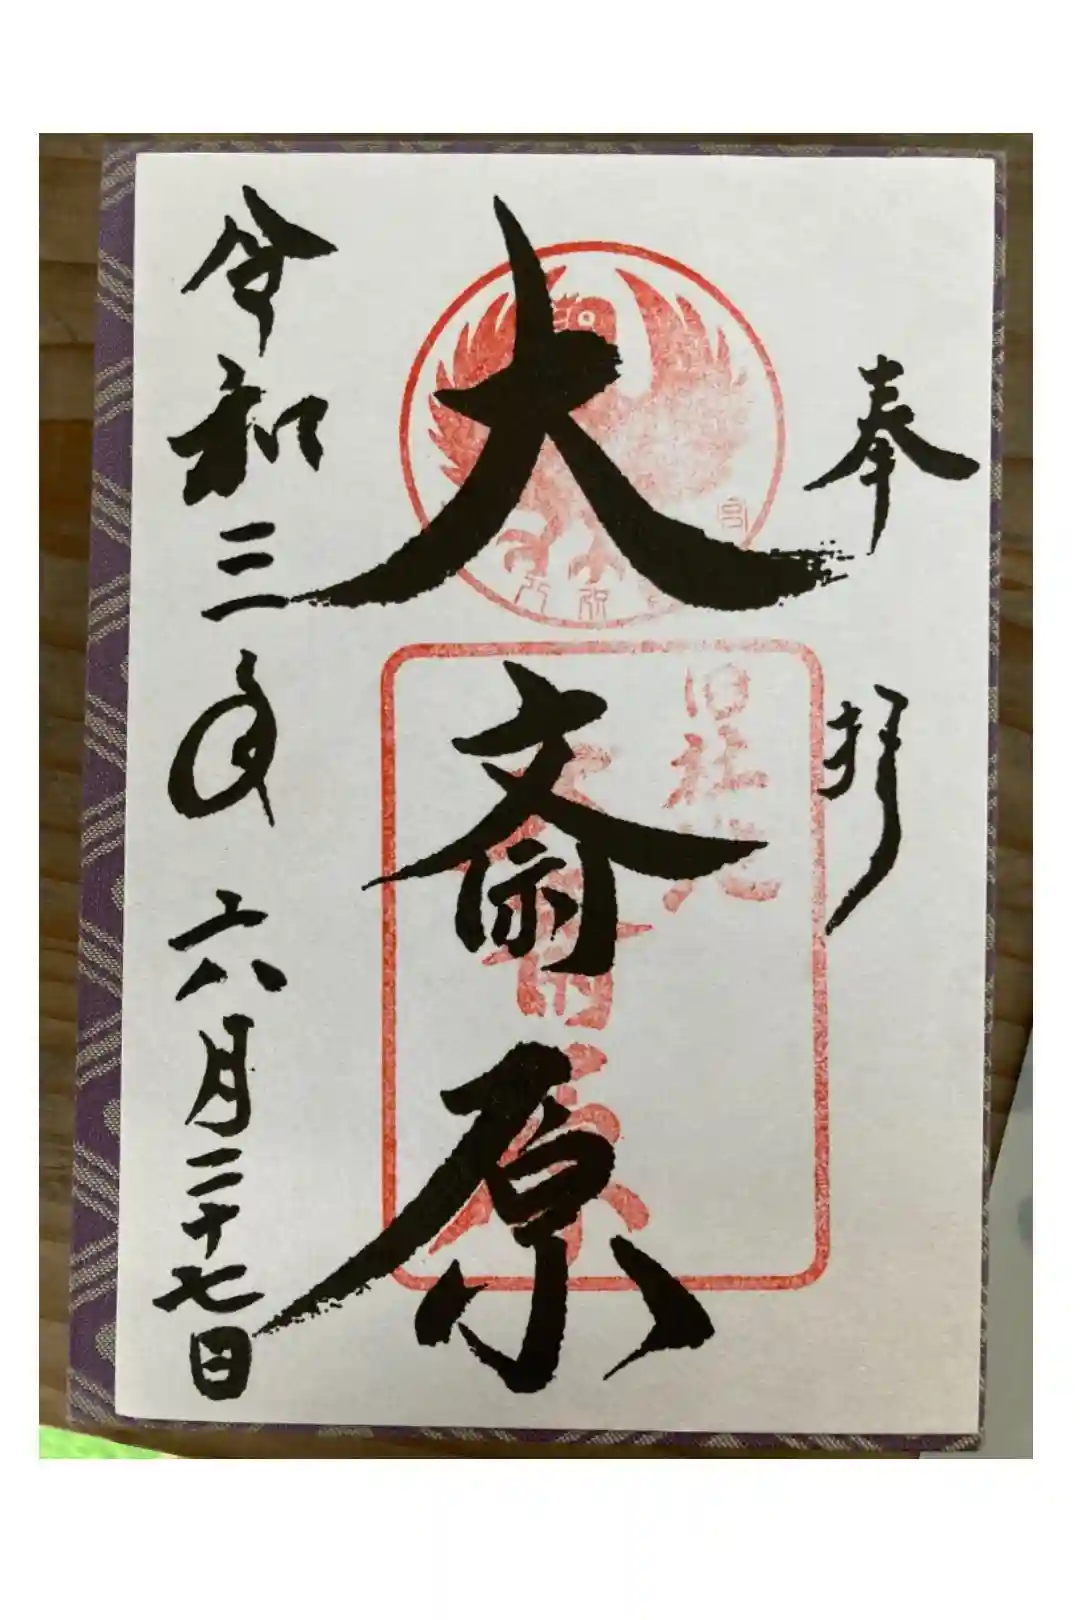 奉拝
大斎原
旧社地
大斎原
令和三年六月二十七日